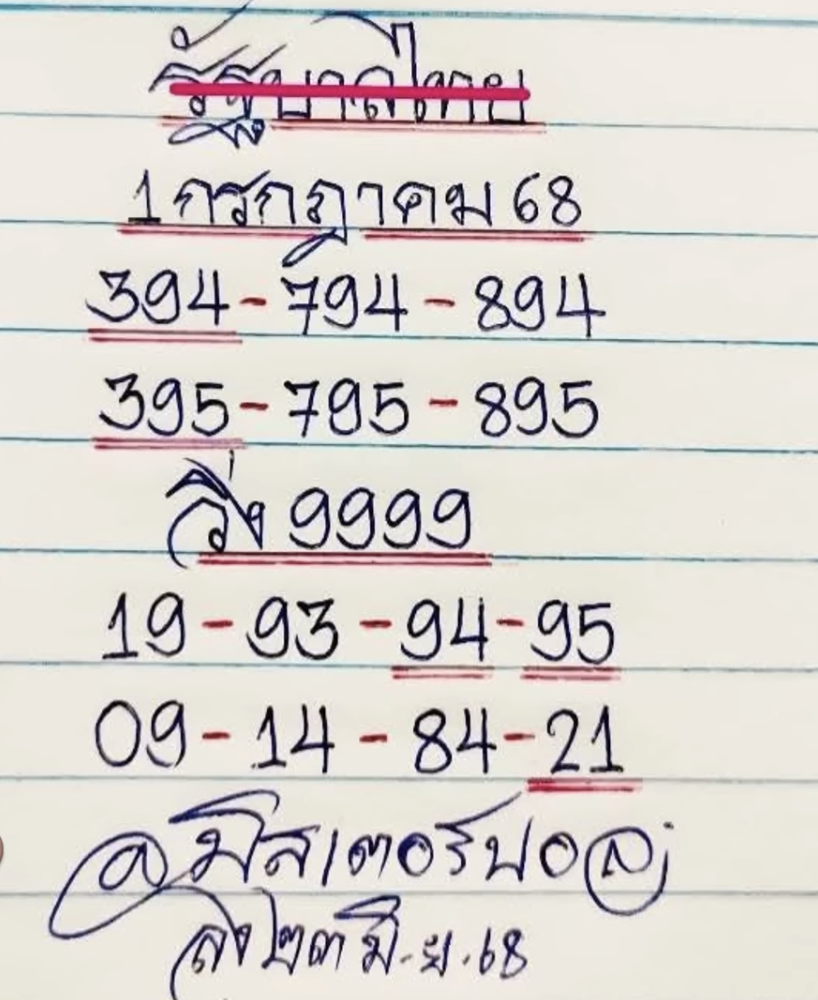 รัฐบาลไทย
1 กรกฎาคม 68
394-794-894
395-795-895
วิ่ง 9999
19-93-94-95
09-14-84-21
@มิสเตอร์ปอล
ส่ง ๒๓ มิ.ย.68